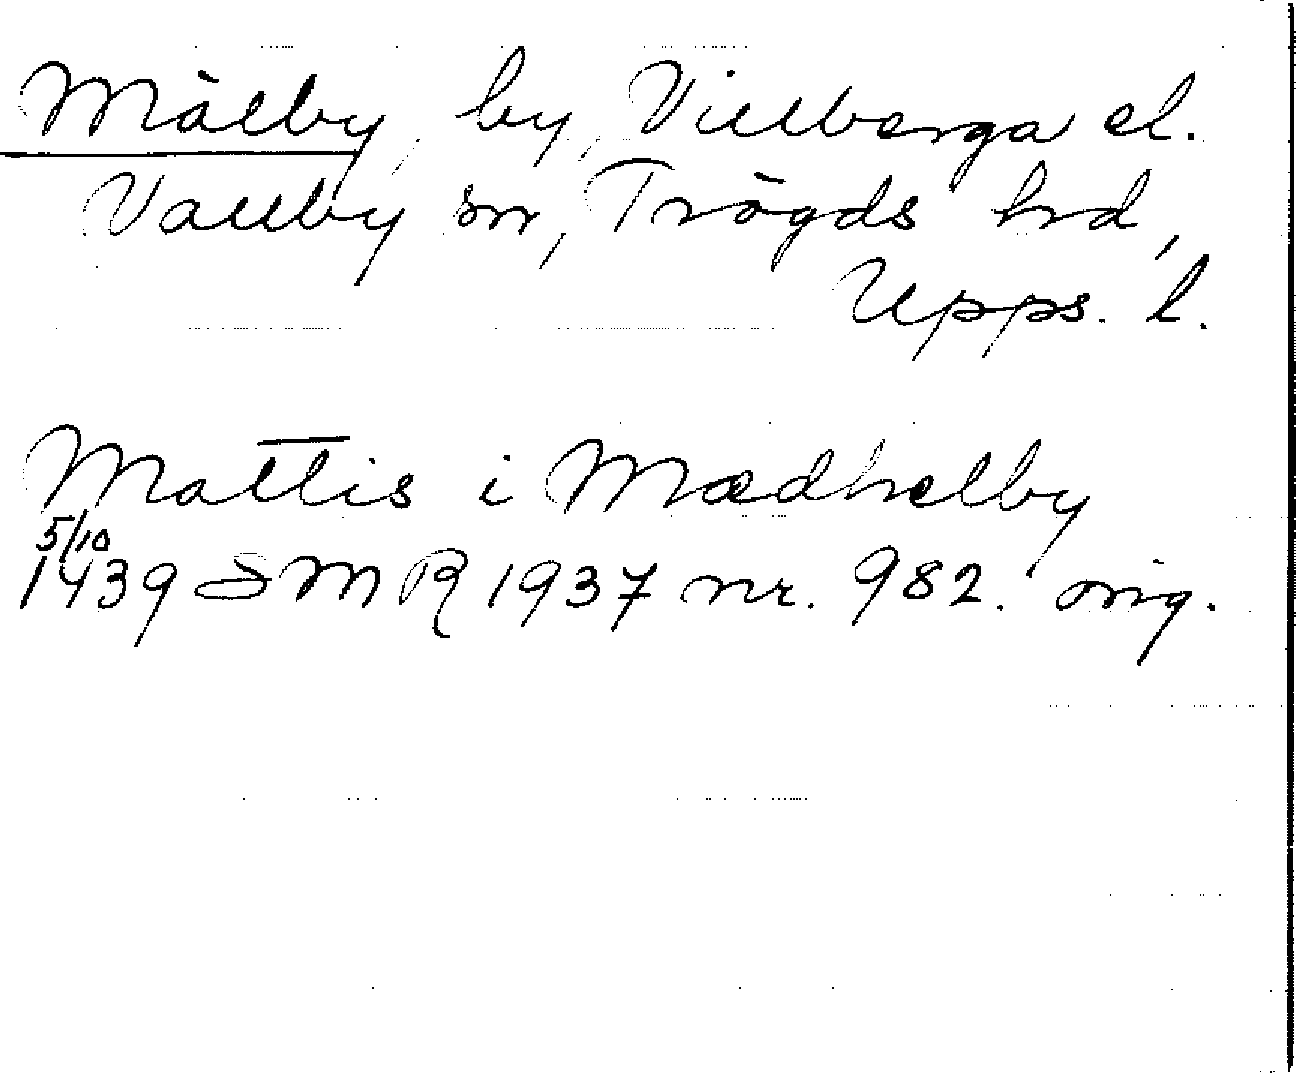 Mälby, by, Villberga el.
Vallby sn, Trögds hd,
Upps. l.
Mattis i Mædhelby
5/10
1439 SMR 1937 nr. 982. orig.